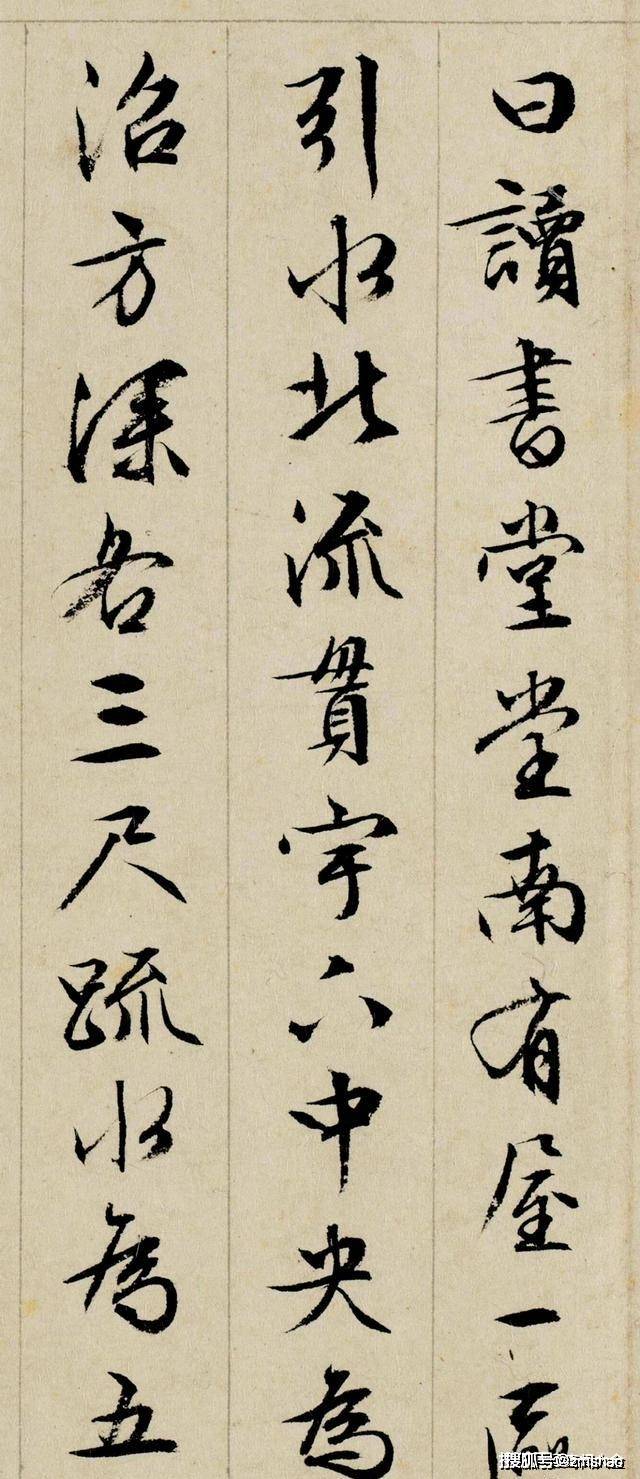 曰讀書堂堂南有屋一區
引水北流貫宇下中央為
沼方深各三尺疏水為五
搜狐号